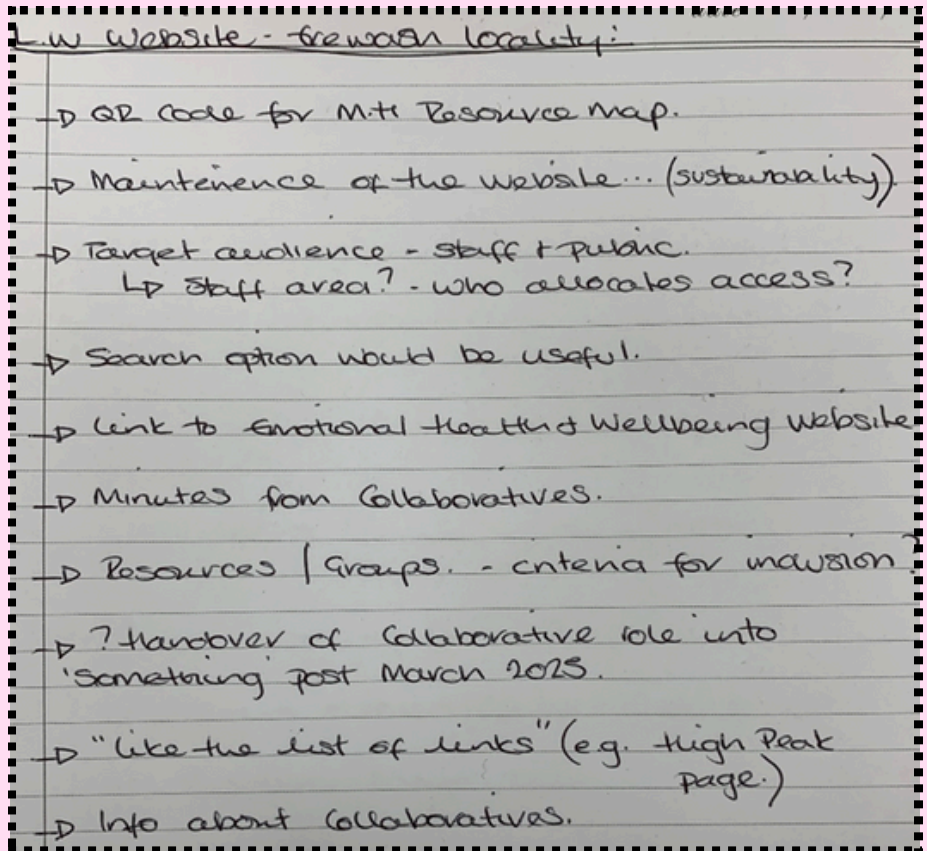 L.W Website - Erewash locality:
→ QR Code for M.H Resource Map.
→ Maintenence of the website... (sustainability)
→ Target audience - staff + public.
↳ Staff area? - who allocates access?
→ Search option would be useful.
→ Link to Emotional Health & Wellbeing Website
→ Minutes from Collaboratives.
→ Resources / Groups. - criteria for inclusion?
→ ? Handover of Collaborative role into
'something' post March 2025.
→ "like the list of links" (e.g. High Peak
page.)
→ Info about Collaboratives.